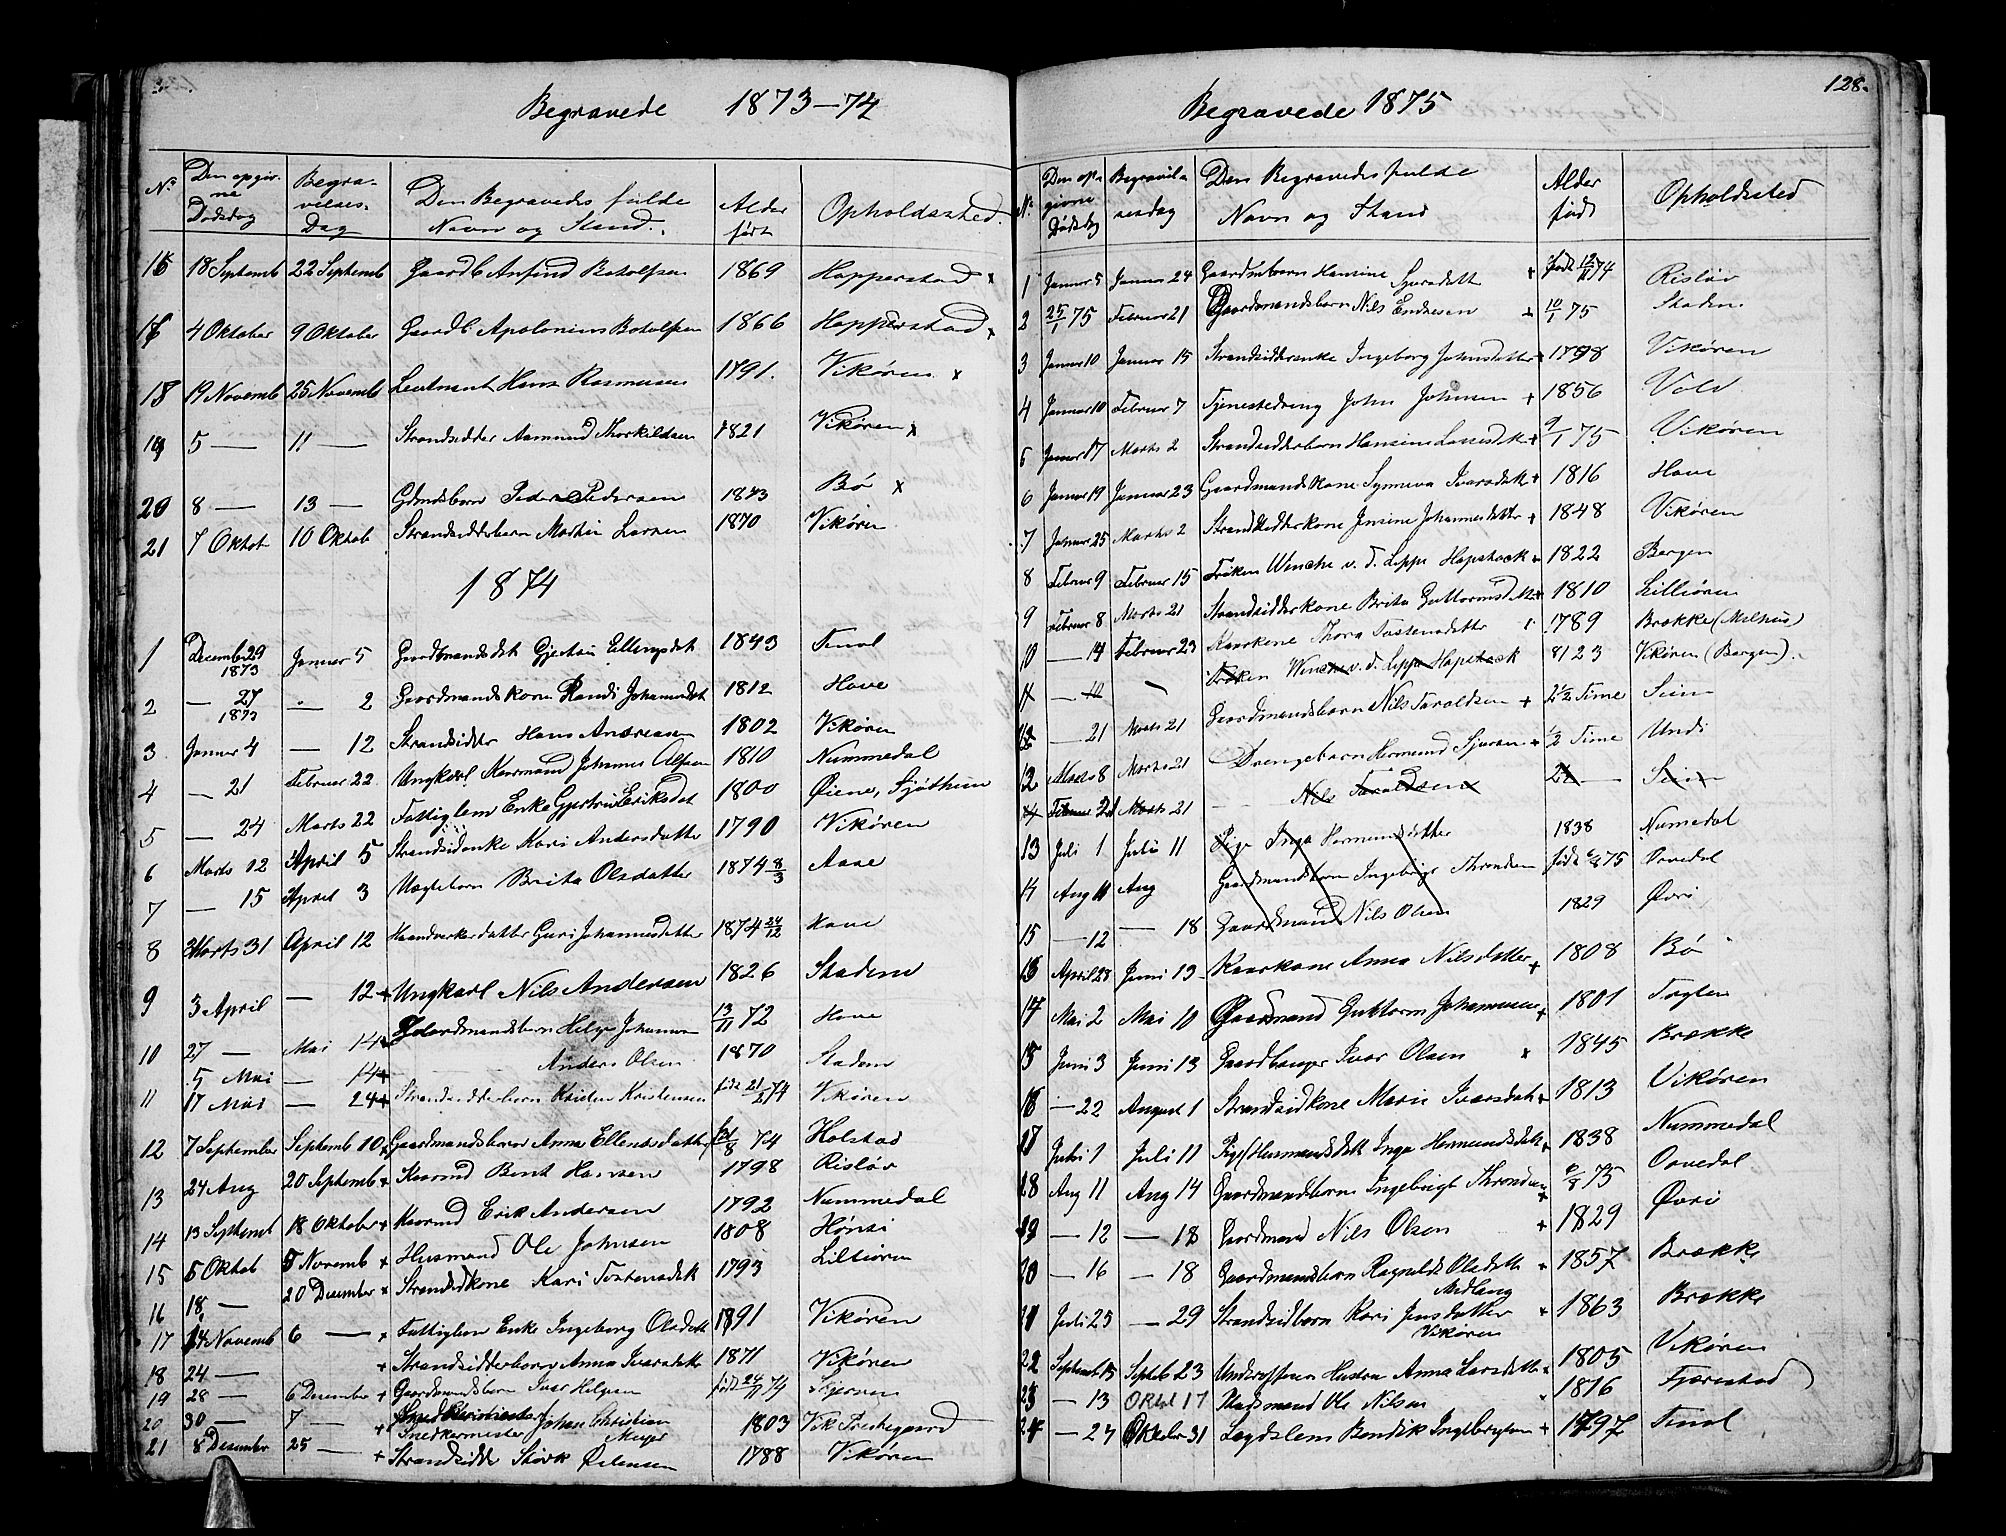 Begravede 1873—74
N.
Den opgivne Dødsdag
Begravelses Dag
Den Begravedes fulde Navn og Stand.
Alder født
Opholdssted.
16 18 Septemb 22 Septemb Gaardb Anfind Botolfsen 1869 Hopperstad x
4 Oktober 9 Oktober Gaardb Apolonius Botolfsen 1866 Hopperstad x
18 19 Novemb 25 Novemb Leutnant Hans Rasmusen 1791. Vikøren x
19 5 — 11 — Strandsidder Aamund Thorkildsen 1821 Vikøren x
20 8 — 13 — Gdmdsbarn Peder Pedersen 1873 Bø x
21 7 Oktob 10 Oktob Strandsidderbarn Larsen 1870 Vikøren
1874
1 December 29 1873 Januar 5 Gaardmandsdat Gjertrui Ellingsdat 1843 Tenol
2 — 27 1873 — 2 Gaardmandskone Randi Johannesdat 1812 Hove
3 Januar 4 — 12 Strandsidder Hans Andersen 1802 Vikøren
4 — 21 Februar 22 Ungkarl Johannes Olsen 1810 Nummedal
5 — 24 Marts 22 Fattiglem Enke Gjertrui Eriksdat 1800 Øiene, Sjøthun
6 Marts 12 April 5 Strandsidenke Kari Andersdatter 1790 Vikøren
7 — 15 April 3 Uægtebarn Brita Olsdatter 1874 8/3 Aase
8 Marts 31 April 12 Haandverkerdatter Guri Johannesdatter 1874 Hove
9 3 April — 12 + Ungkarl Nils Andersen 1826 Stadem
10 27 — Mai 14 + Gaardmandsbarn Helge Johannesen 13/11 72 Hove
5 Mai — 14 + Anders Olsen 1870 Stadem
11 17 Mai — 24 + Strandsidderbarn Kristen Kristensen født 21/2 74 Vikøren
12 7 September Septemb 10 + Gaardmandsbarn Anna Ellendsdatter 74 Holstad
13 24 Aug 20 Septemb + Kaarmd Bent Hansen 1798 Risløv
14 13 Septembt 18 Oktober + Kaarmd Erik Andersen 1792 Nummedal
15 5 Oktob 5 Novemb + Husmand Ole Johnsen 1808 Hønsi
16 18 — 20 December + Strandsidkone Kari Tostensdat 1793 Liltiøren
17 14 Novemb 6 — + Fattiglem Enke Ingeborg Olsdatt 1891 Vikøren
18 24 — + Strandsidderbarn Anna Ivarsdatt 1871 Vikøren
19 28 — 6 December + Gaardmandsbarn Ivar Helgesen født 74
20 30 — 7 — + Snedkermester Johan Christian Meyer 1803 Vik Prestegaard
21 8 December 25 — + Strandsidder Størk Østensen 1788 Vikøren
Begravede 1875
128.
N.
Den opgivne Dødsdag
Begravelsesdag
Den Begravedes fulde Navn og Stand
Alder født
Opholdssted
1 Januar 5 Januar 24 Gaardmbarn Hansine Sjursdatt + født 12/11 74 Risløv
2 25/1 75 Februar 21 Gaardmandsbarn Nils Endresen + 10/1 75 Stadem
3 Januar 10 Januar 15 Strandsidderenke Ingeborg Johnsdatter + 1798 Vikøren
4 Januar 10 Februar 7 Tjenestedreng John Johnsen + 1856 Vold
6 Januar 17 Marts 2 Strandsidderbarn Hansine Larsdatt + 9/1 75 Vikøren
6 Januar 19 Januar 23 Gaardmandskone Synneva Ivarsdatt + 1816 Hove
7 Januar 25 Marts 2 Strandsidderkone Jensine Johannesdatter + 1848 Vikøren
8 Februar 9 Februar 15 Frøken Wenche v. d. Lippe Hopstock + 1822 Bergen
9 Februar 8 Marts 21 Strandsidderkone Brita Guttormsdatt + 1810 Lilliøren
10 — 14 Februar 23 Kaarkone Thora Tostensdatter + 1789 Brække (Melhus)
11 — 10 Frøken Wenche v. d. Lippe Hopstock 8/1 23 Vikøren (Bergen).
— 21 Marts 21 Gaardmandsbarn Nils Taraldsen + 2 1/2 Time Seim
12 Marts 8 Marts 21 Drengebarn Hermund Sjursen + 1/2 Time Undi
Februar 21 Marts 21 — Nils Taraldsen 2½ — Seim
13 Juli 1 Juli 11 Pige Inga Hermundsdatter 1838 Nummedal
14 Aug 11 Aug Gaardmandsbarn Ingebrigt Throndsen født 6/8 75 Ovredal
15 — 12 — 18 Gaardmand Nils Olsen 1829 Øvri
13 April 28 Juni 13 Kaarkone Anna Nilsdatter + 1808 Bø
14 Mai 2 Mai 10 Gaardmand Guttorm Johannesen + 1801
15 Juni 3 Juni 13 Gaardbruger Ivar Olsen x 1845 Brække
16 — 22 August 1 Strandsidkone Marie Ivarsdat + 1813 Vikøren
17 Juli 1 Juli 11 Pige/Husmandsdat Inga Hermundsdatt + 1838 Nummedal
18 Aug 11 Aug 14 Gaardmandbarn Ingebrigt Throndsen + 6/8 75 Ovredal
19 — 12 — 18 Gaardmand Nils Olsen + 1829 Øvri
20 — 16 — 18 Gaardmandsbarn Ragnilde Olsdatt + 1857 Brække
21 Juli 25 — 29 Strandsidbarn Kari Jensdatter + 1863 Brække
Vikøren
22 Septemb 15 Septb 23 Underoffisers Hustru Anna Larsdatt + 1805 Vikøren
23 — 13 Oktob 17 Husmand Ole Nilsen 1816 Fjærestad
24 — 27 Oktober 31 Lægdslem Bendik Ingebrigtsen + 1797 Tenol